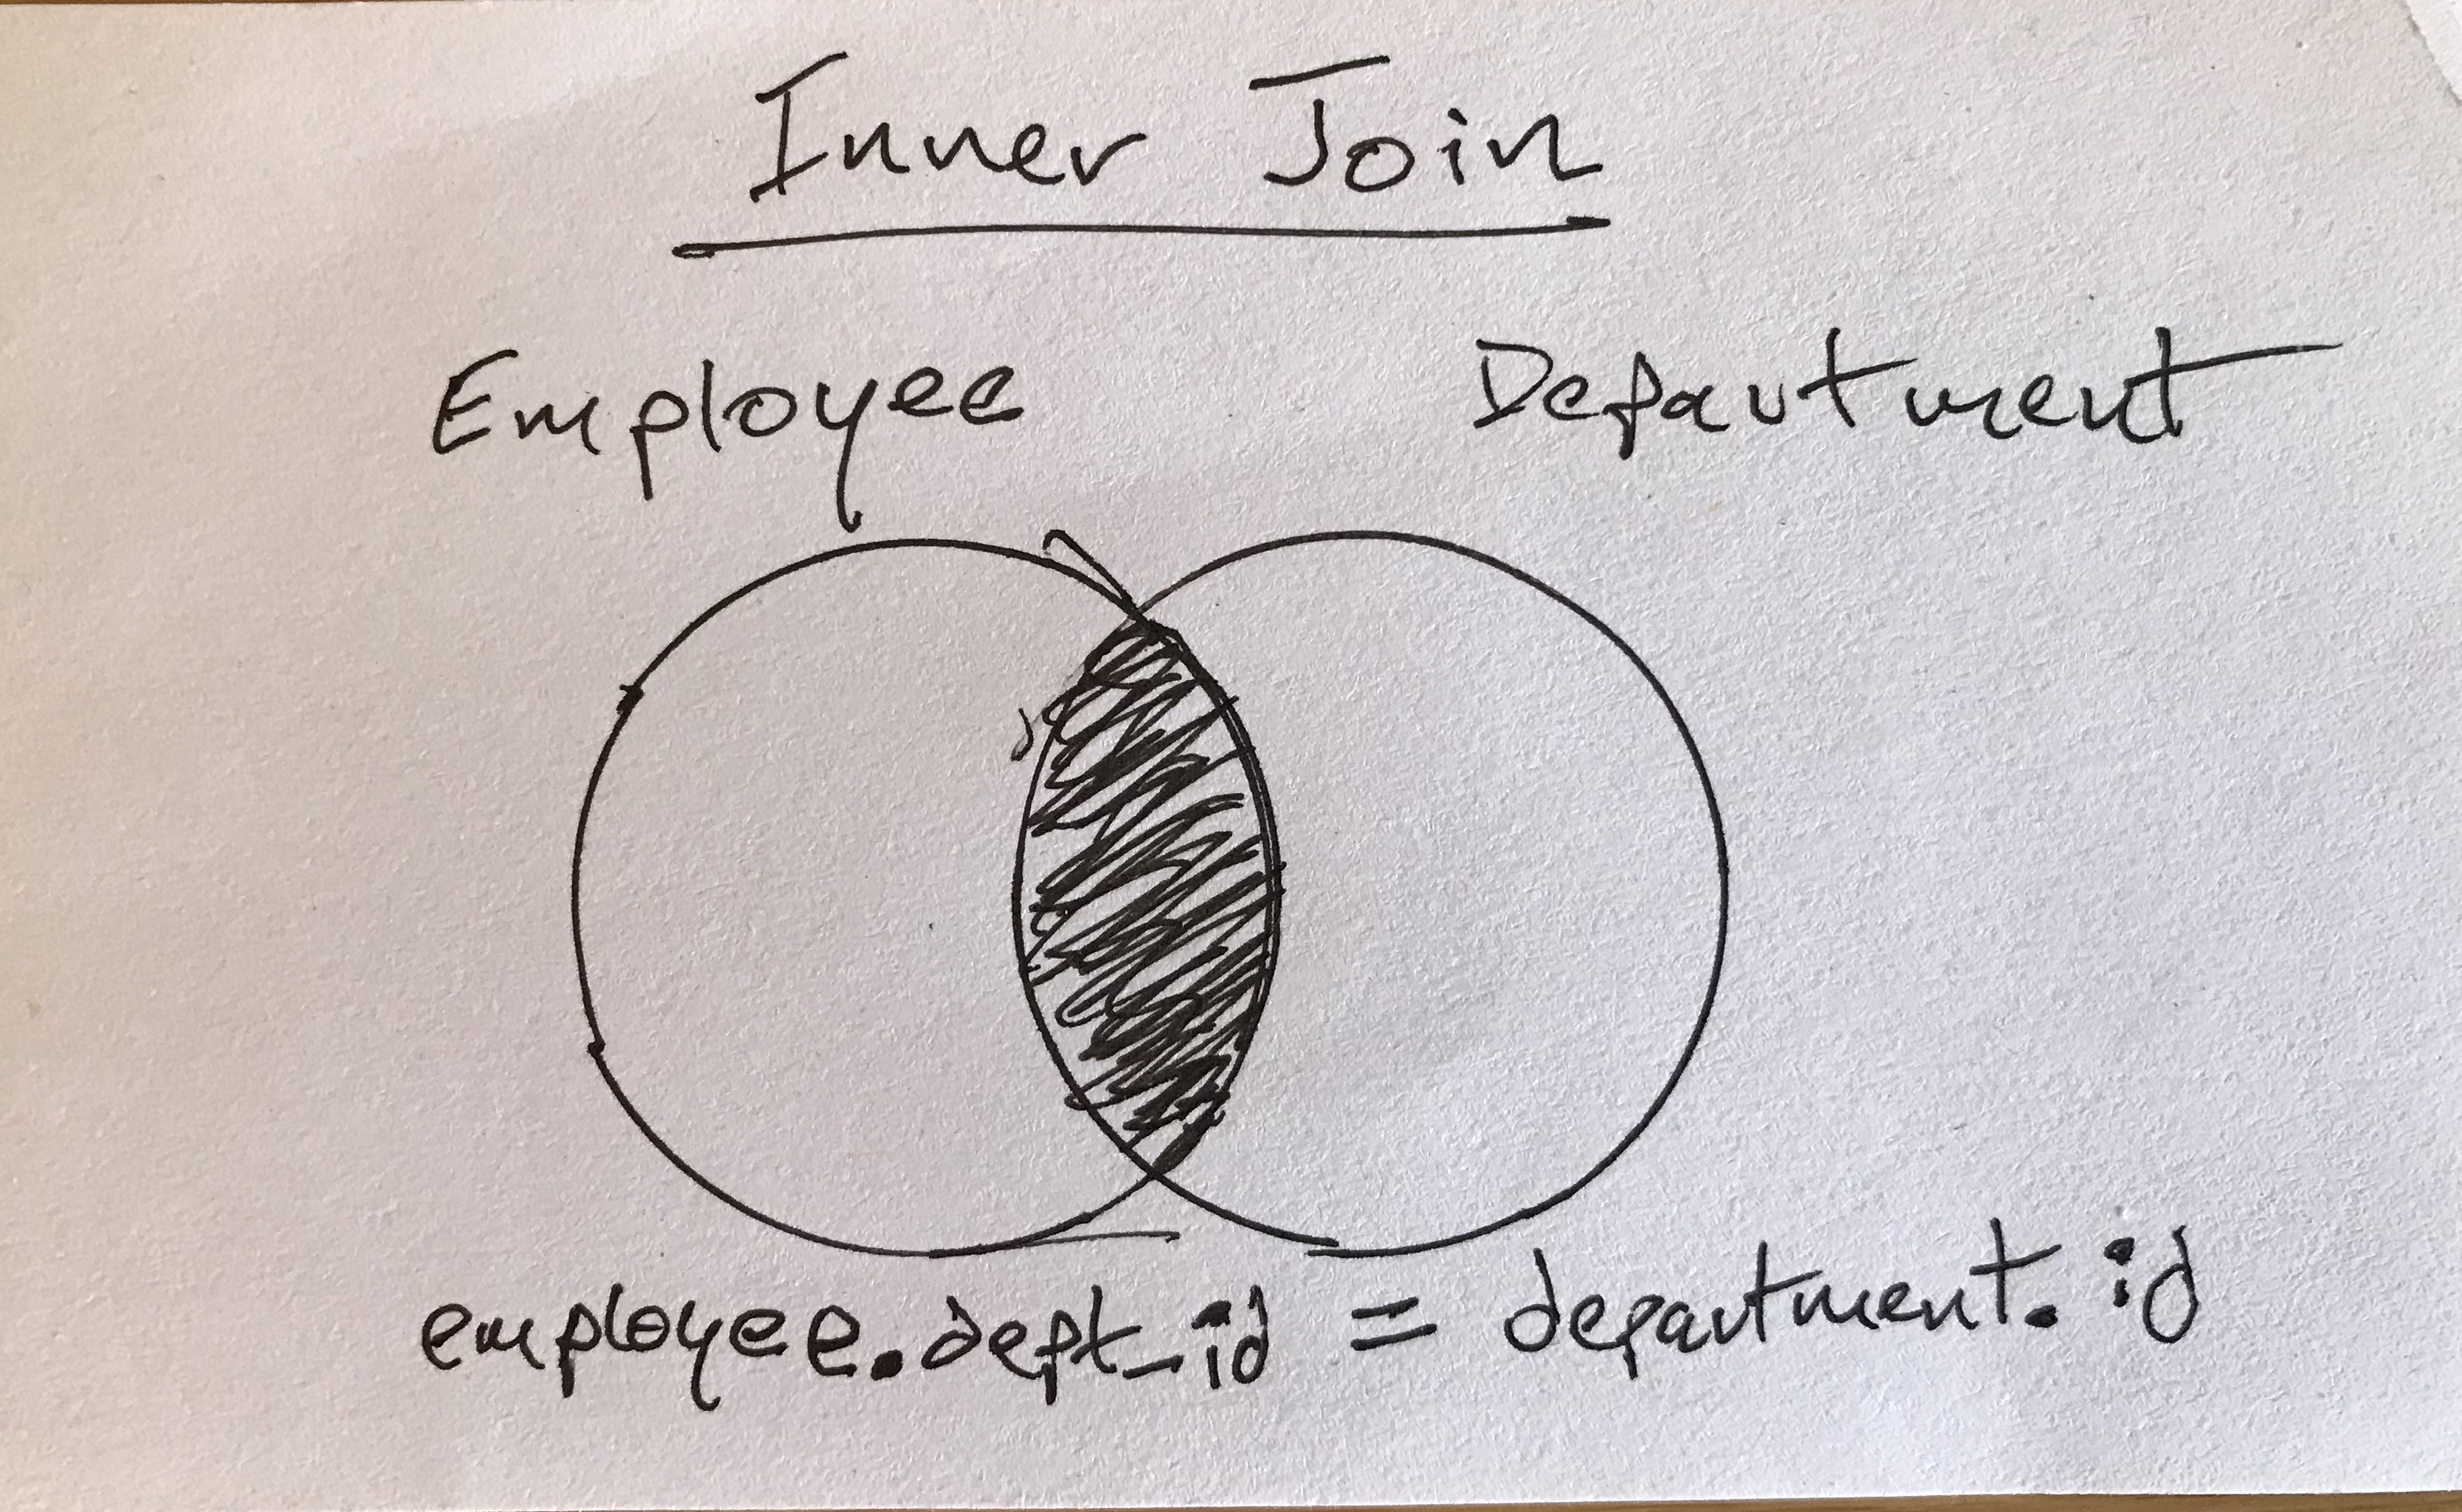 Inner Join
Employee Department
employee.dept_id = department.id